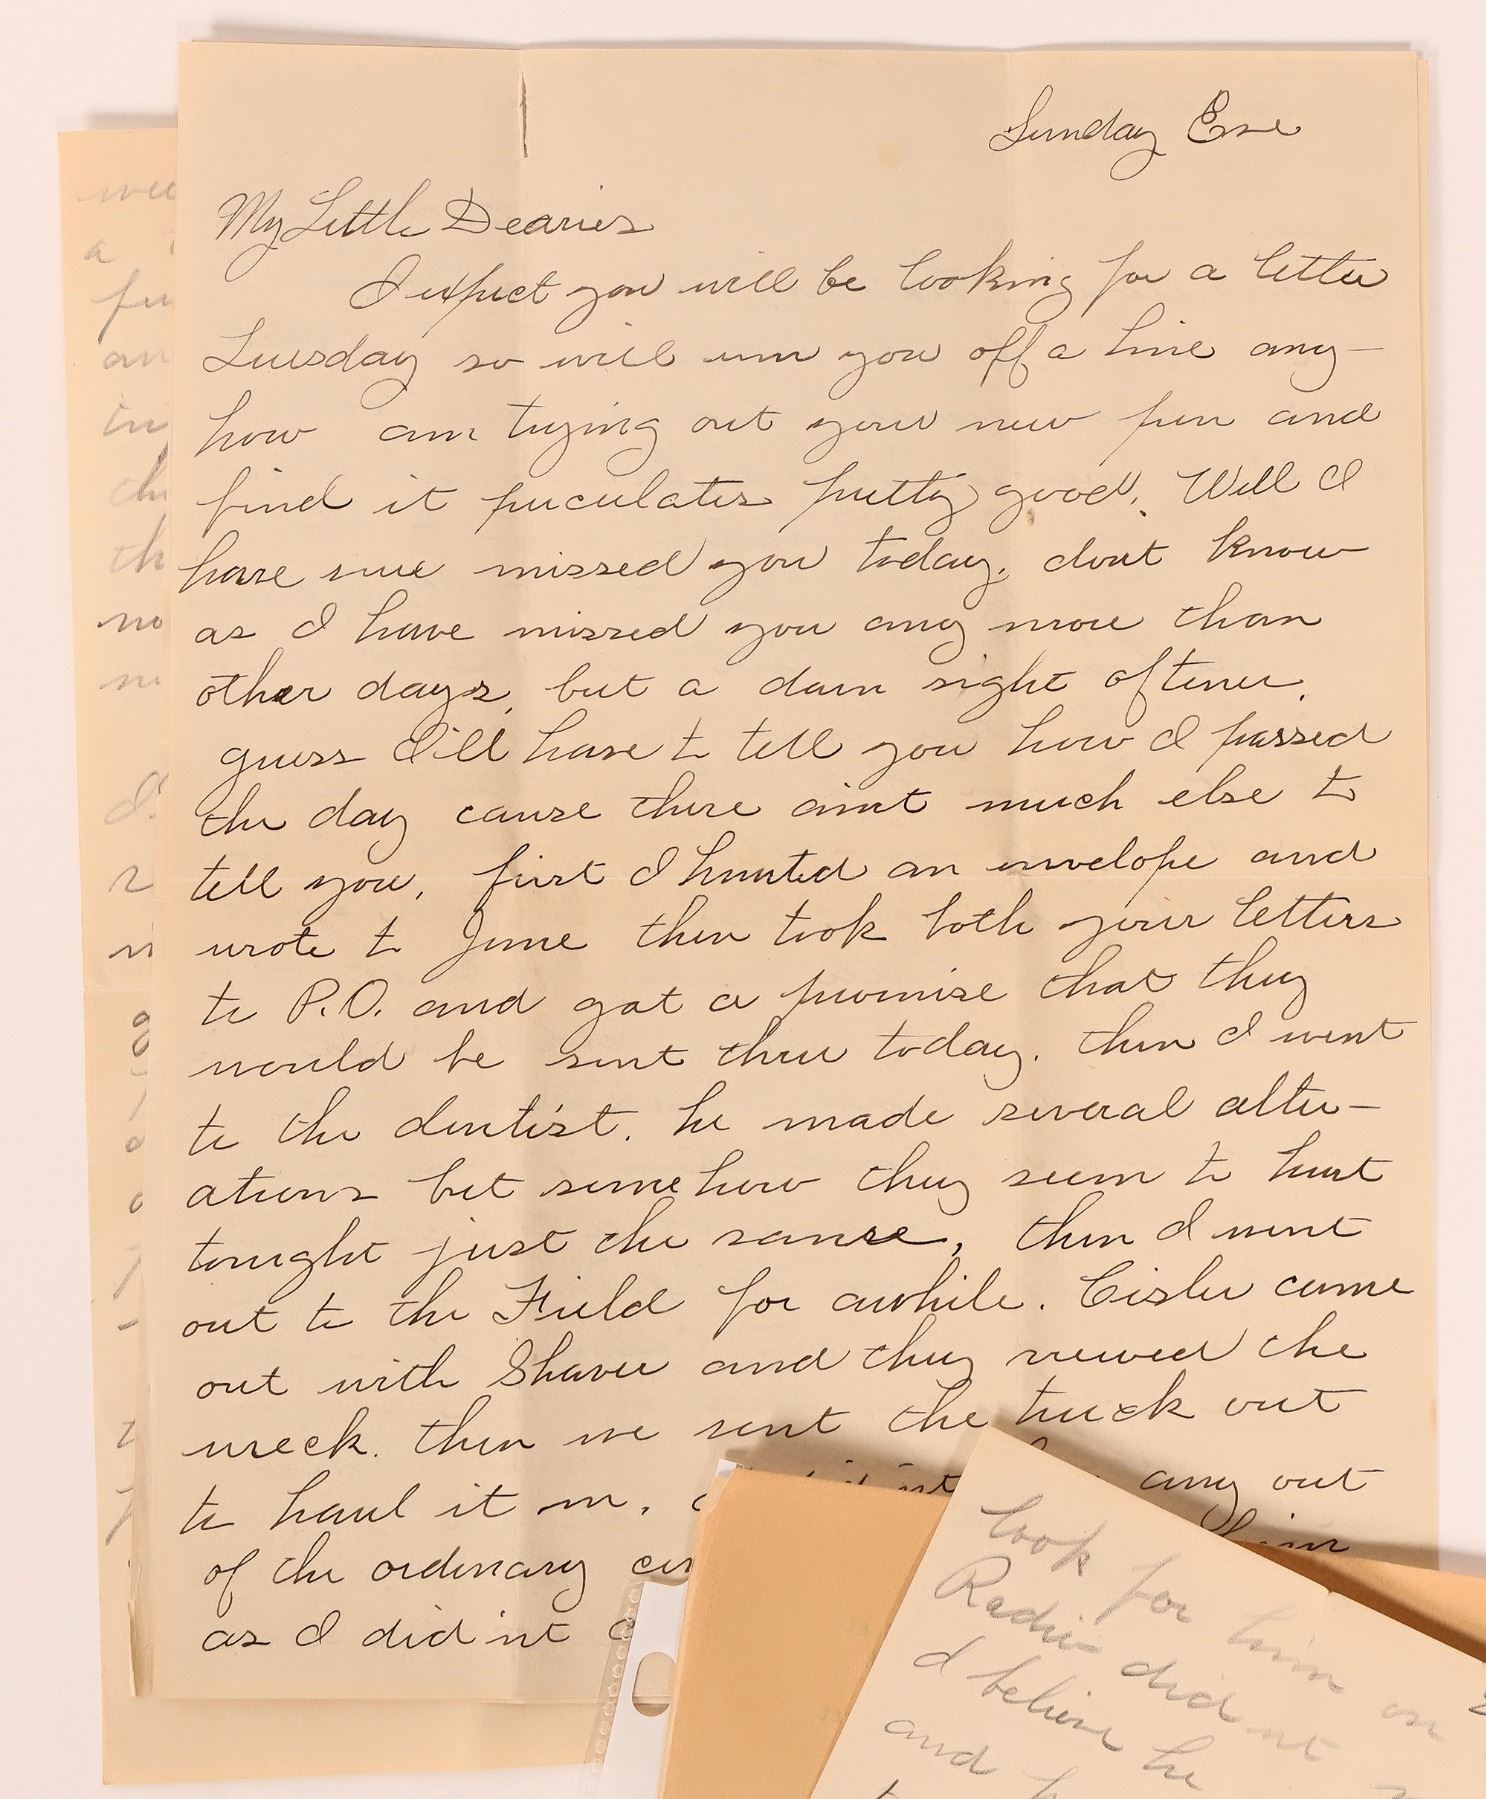 Sunday Eve
My Little Dearies
I expect you will be looking for a letter
Tuesday so will run you off a line any-
how am trying out your new pen and
find it perculates pretty good. Well I
have sure missed you today. dont know
as I have missed you any more than
other days, but a darn sight oftener.
guess I'll have to tell you how I passed
the day cause there aint much else to
tell you. first I hunted an envelope and
wrote to June then took both your letters
to P.O. and got a promise that they
would be sent thru today. then I went
to the dentist. he made several alter-
ations but somehow they seem to hurt
tonight just the same, then I went
out to the Field for awhile. Cisler came
out with Shaver and they viewed the
wreck. then we sent the truck out
to haul it in. any out
of the ordinary
as I did'nt
look for him on
Radio did nt
I believe he
and